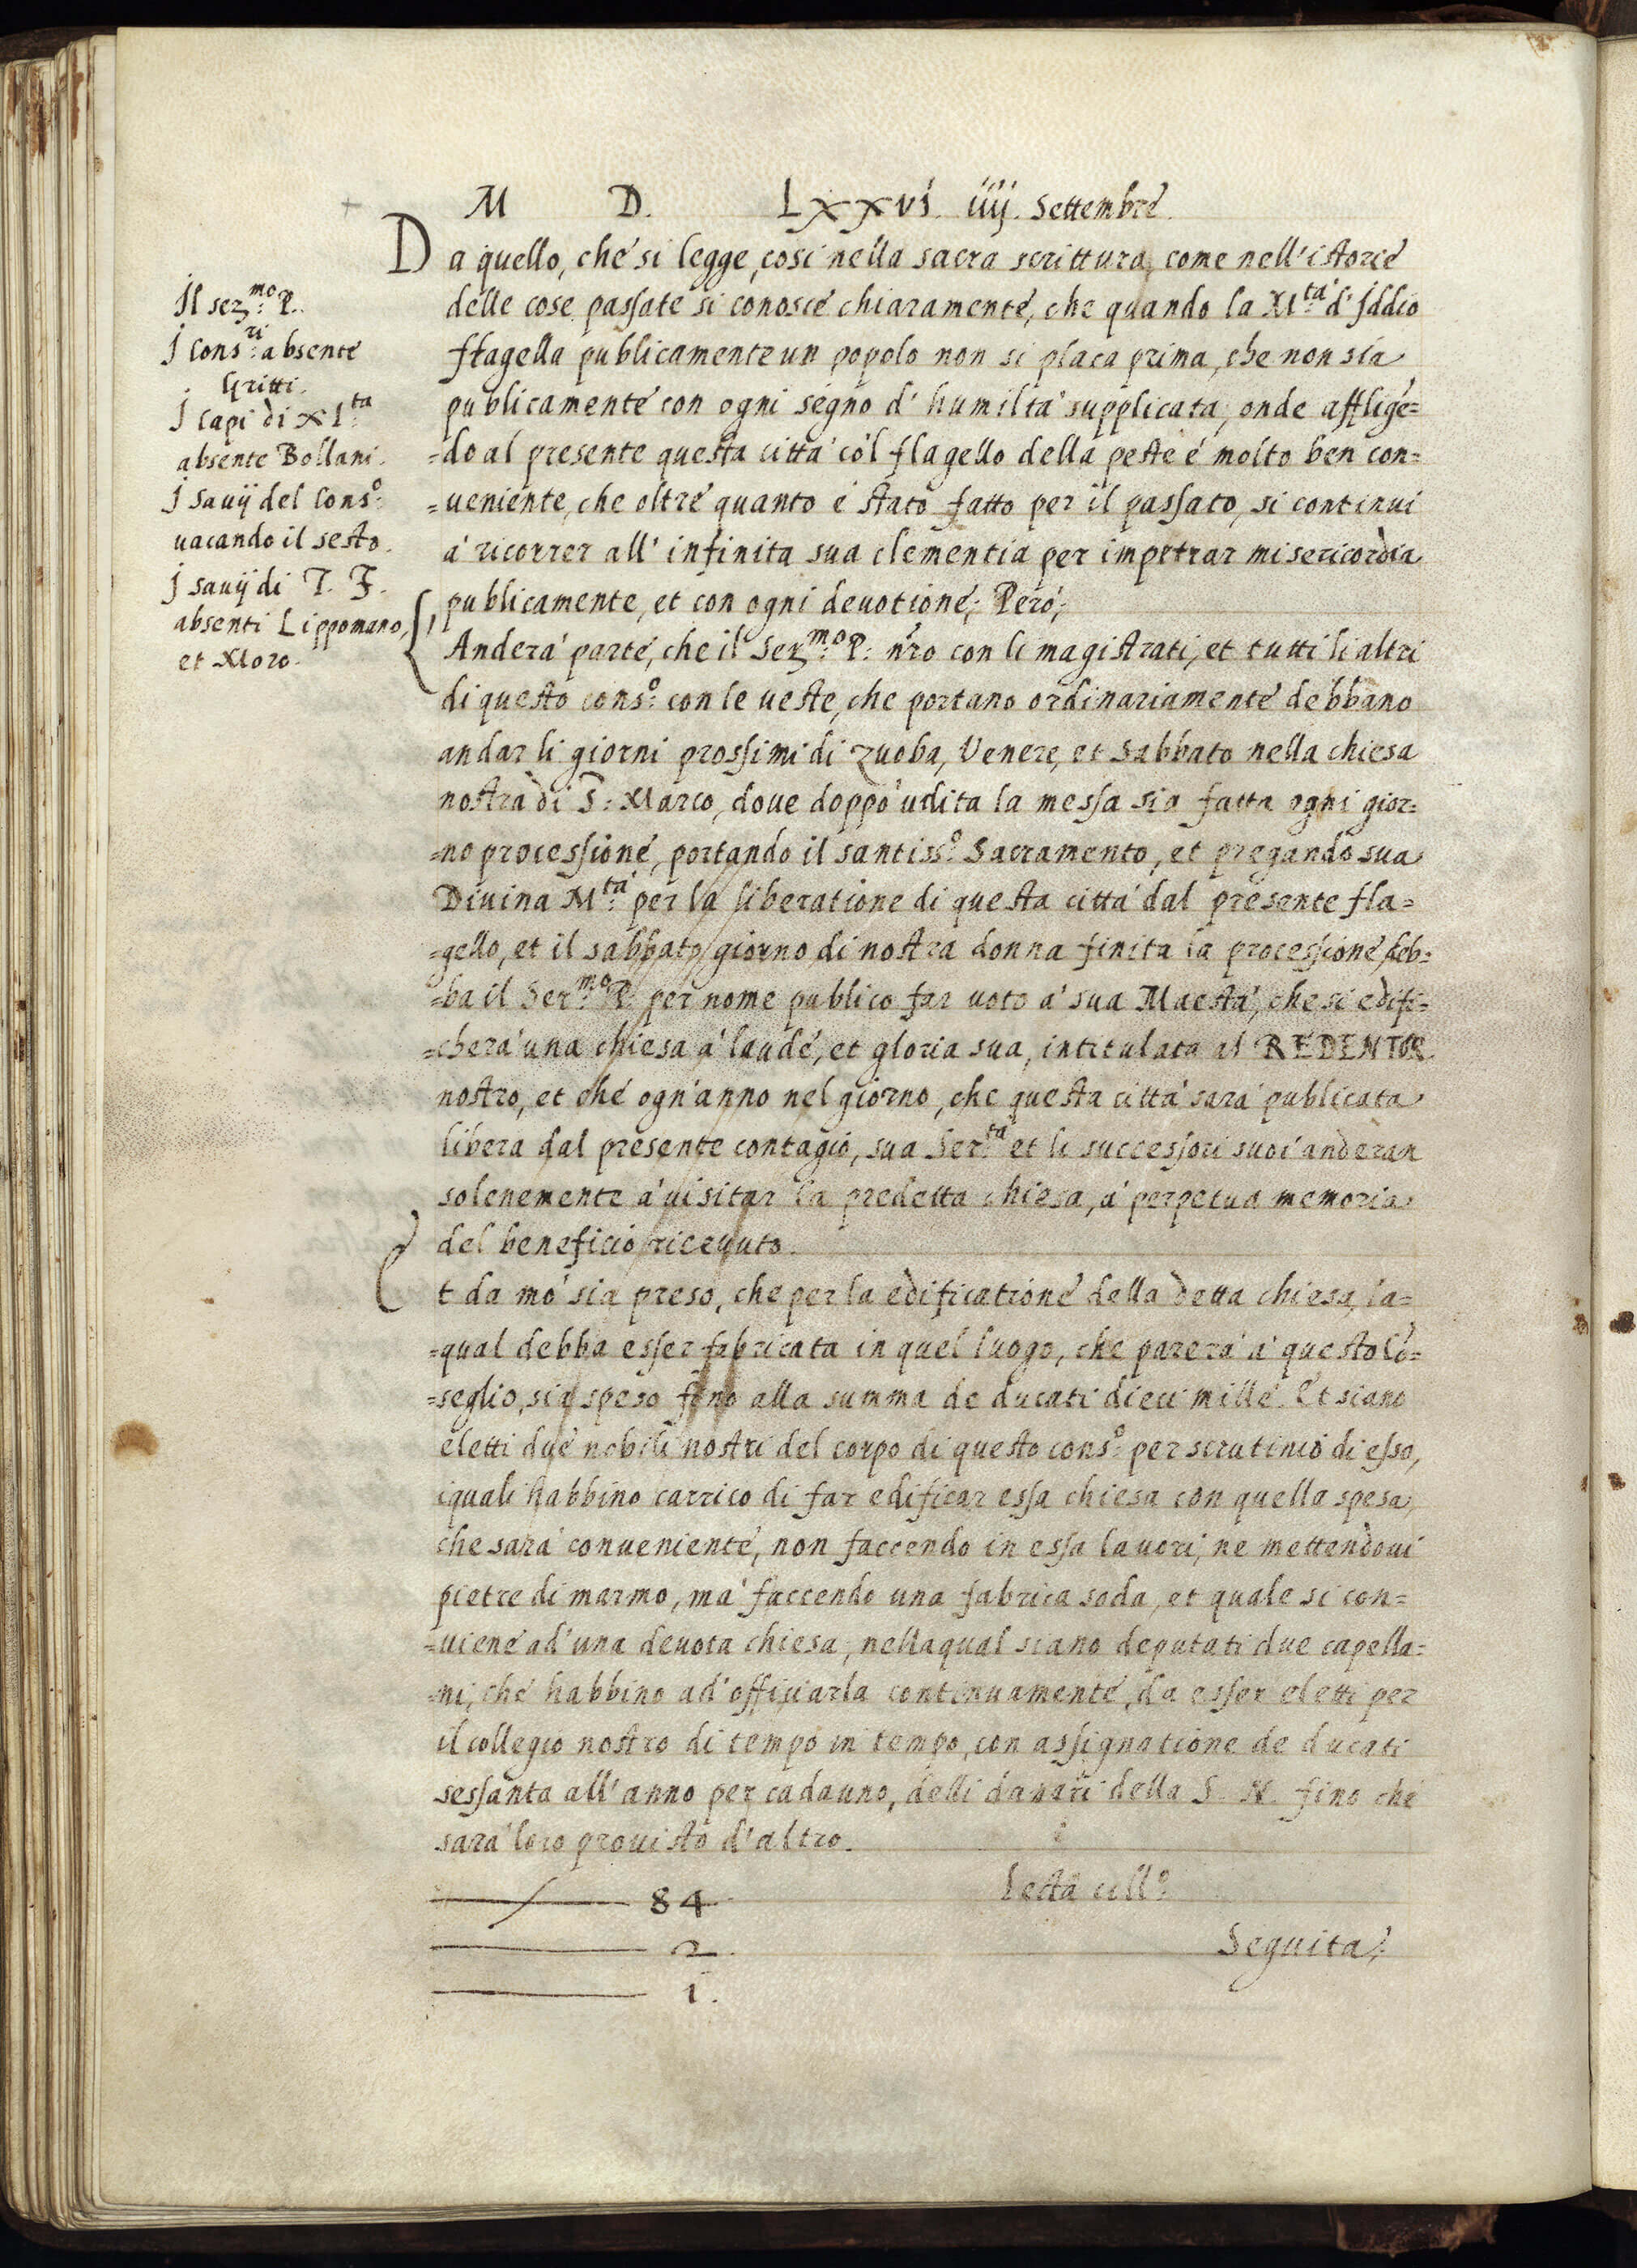 M D. LXXVI. iiij. Settembre.
Da quello, che si legge, cosi nella sacra scrittura, come nell'istorie
delle cose passate si conosce chiaramente, che quando la M:tà d'Iddio
flagella publicamente un popolo non si placa prima, che non sia
publicamente con ogni segno d'humiltà supplicata, onde affligē=
=do al presente questa città co'l flagello della peste é molto ben con=
=ueniente, che oltre quanto é stato fatto per il passato, si continui
á ricorrer all'infinita sua clementia per impetrar misericordia
publicamente, et con ogni deuotione; Peró;
Anderá parte, che il Ser:mo P: nr̃o con li magistrati, et tutti li altri
di questo cons:o con le ueste, che portano ordinariamente debbano
andar li giorni prossimi di zuoba, Venere, et Sabbato nella chiesa
nostra di S: Marco, doue doppo udita la messa sia fatta ogni gior=
=no processione, portando il santiss:o Sacramento, et pregando sua
Diuina M:tá per la liberatione di questa cittá dal presente fla=
=gello, et il sabbato giorno di nostra donna finita la processione, deb=
=ba il Ser:mo P: per nome publico far uoto á sua Maestá, che si edifi=
=cherá una chiesa á laude, et gloria sua, intitulata al REDENTOR
nostro, et che ogn'anno nel giorno, che questa cittá sará publicata
libera dal presente contagio, sua Ser:tá et li successori suoi anderan
solenemente á uisitar la predetta chiesa, á perpetua memoria
del beneficio riceuuto.
Et da mó sia preso, che per la edificatione della detta chiesa, la=
=qual debba esser fabricata in quel luogo, che parerá á questo Cō=
=seglio, sia speso fino alla summa de ducati dieci mille. Et siano
eletti due nobili nostri del corpo di questo cons:o per scrutinio di esso,
iquali habbino carrico di far edificar essa chiesa con quella spesa,
che sará conueniente, non faccendo in essa lauori, ne mettendoui
pietre di marmo, má faccendo una fabrica soda, et quale si con=
=uiene ad'una deuota chiesa, nellaqual siano deputati due capella=
=ni, che habbino ad'officiarla continuamente, da esser eletti per
il collegio nostro di tempo in tempo, con assignatione de ducati
sessanta all'anno per cadauno, delli danari della S. N. fino che
sará loro prouisto d'altro.
84 Lecta coll:o
2. Seguita;
1.
Il ser:mo P.
I Cons:ri absente
Gritti.
I Capi di XL:ta
absente Bollani.
I Sauij del Cons:o
uacando il sesto.
I sauij di T. F.
absenti Lippomano,
et Moro.